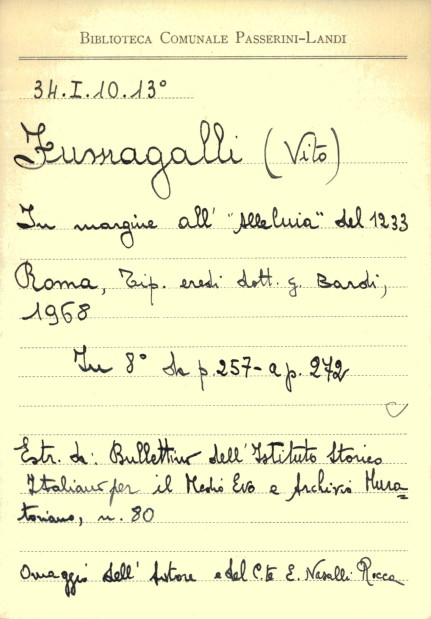 BIBLIOTECA COMUNALE PASSERINI-LANDI
34.I.10.13°
Fumagalli (Vito)
In margine all' "Alleluia" del 1233
Roma, Tip. eredi dott. G. Bardi,
1968
In 8° da p. 257 - a p. 272
Estr. da: Bullettino dell'Istituto Storico
Italiano per il Medio Evo e Archivio Mura=
toriano, n. 80
Omaggio dell' Autore e del C.te E. Nasalli Rocca